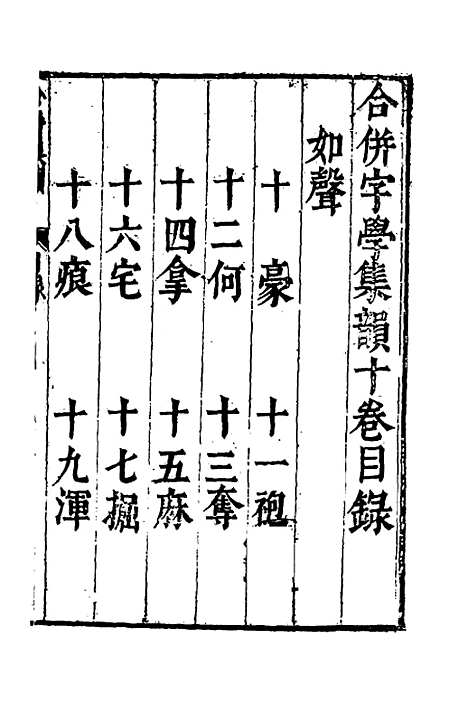 合併字學集韻十卷目錄
如聲
十豪 十一袍
十二何 十三奪
十四拿 十五麻
十六宅 十七掘
十八痕 十九渾